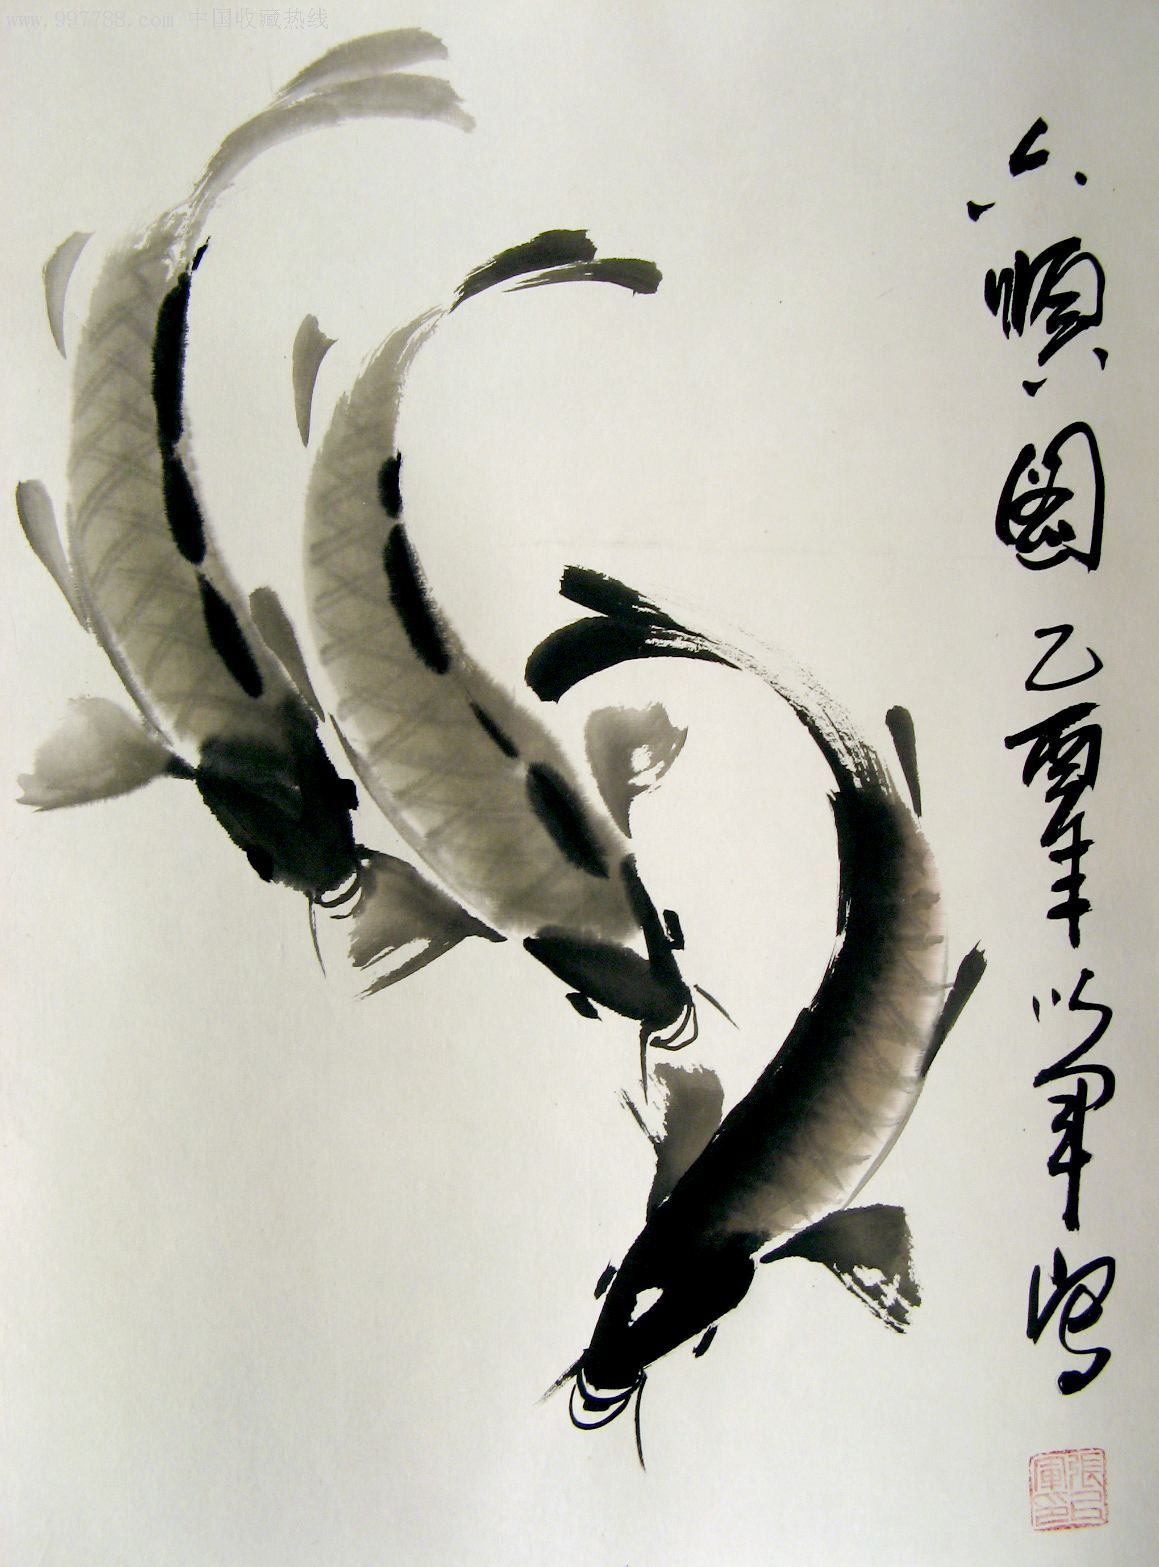 www.997788.com 中国收藏热线
六顺图 乙酉年 以军写